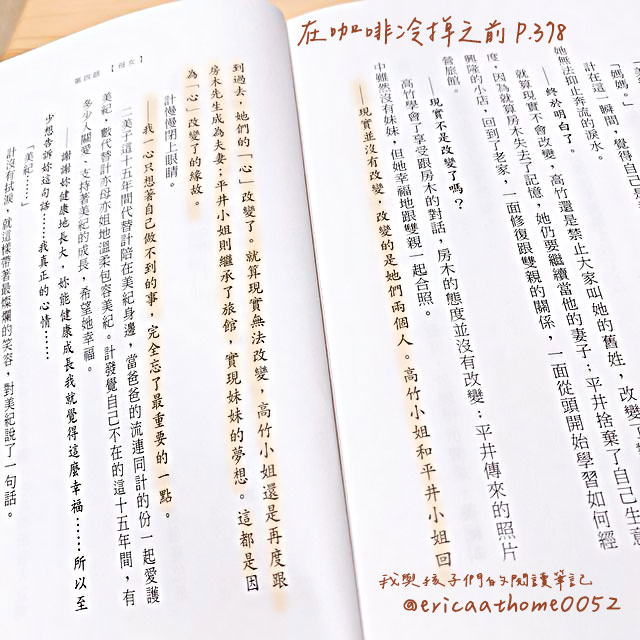 在咖啡冷掉之前 P.398
「媽媽。」
計在這一瞬間，覺得自己
她無法抑止奔流的淚水。
——終於明白了。
就算現實不會改變，高竹還是禁止大家叫她的舊姓，改變了
度，因為就算房木失去了記憶，她仍要繼續當他的妻子；平井捨棄了自己生意
興隆的小店，回到了老家，一面修復跟雙親的關係，一面從頭開始學習如何經
營旅館。
——現實不是改變了嗎？
高竹學會了享受跟房木的對話，房木的態度並沒有改變；平井傳來的照片
中雖然沒有妹妹，但她幸福地跟雙親一起合照。
——現實並沒有改變，改變的是她們兩個人。高竹小姐和平井小姐回
到過去，她們的「心」改變了。就算現實無法改變，高竹小姐還是再度跟
房木先生成為夫妻；平井小姐則繼承了旅館，實現妹妹的夢想。這都是因
為「心」改變了的緣故。
計慢慢閉上眼睛。
——我一心只想著自己做不到的事，完全忘了最重要的一點。
二美子這十五年間代替計陪在美紀身邊，當爸爸的流連同計的份一起愛護
美紀，數代替計亦母亦姐地溫柔包容美紀。計發覺自己不在的這十五年間，有
多少人關愛、支持著美紀的成長，希望她幸福。
——謝謝妳健康地長大，妳能健康成長我就覺得這麼幸福……所以至
少想告訴妳這句話……我真正的心情……
「美紀……」
計沒有拭淚，就這樣帶著最燦爛的笑容，對美紀說了一句話。
第四話 【母女】
我與孩子們的閱讀筆記
@ericaathome0052